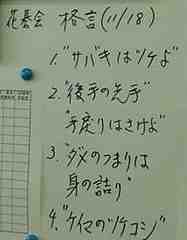 花碁会 格言(11/18)
1."サバキはツケよ"
2."後手の先手"
"手戻りはさけよ"
3."ダメのつまりは
身の詰り"
4."ケイマのツケコシ"